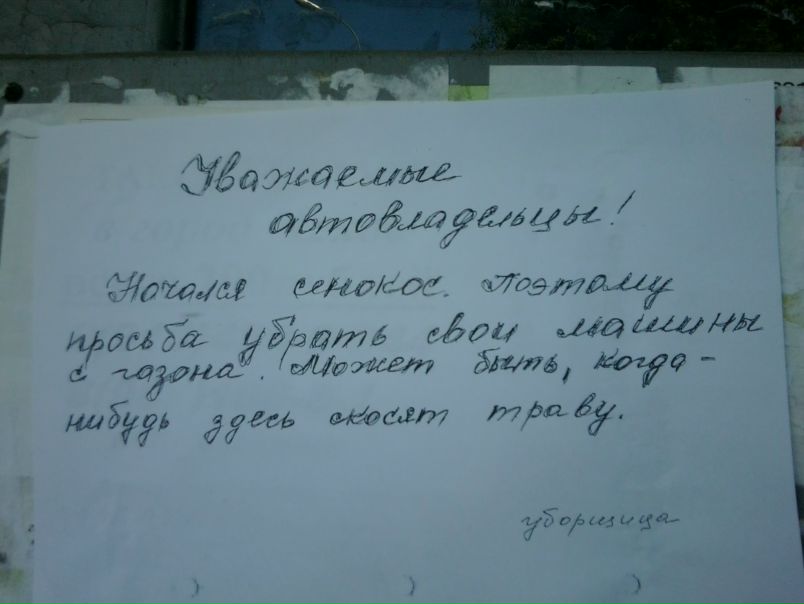 Уважаемые
автовладельцы!
Начался сенокос. Поэтому
просьба убрать свои машины
с газона. Может быть, когда-
нибудь здесь скосят траву.
уборщица